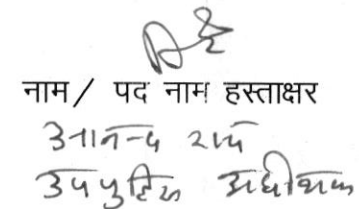 नाम / पद नाम हस्ताक्षर
आनन्द राय
उप पुलिस अधीक्षक